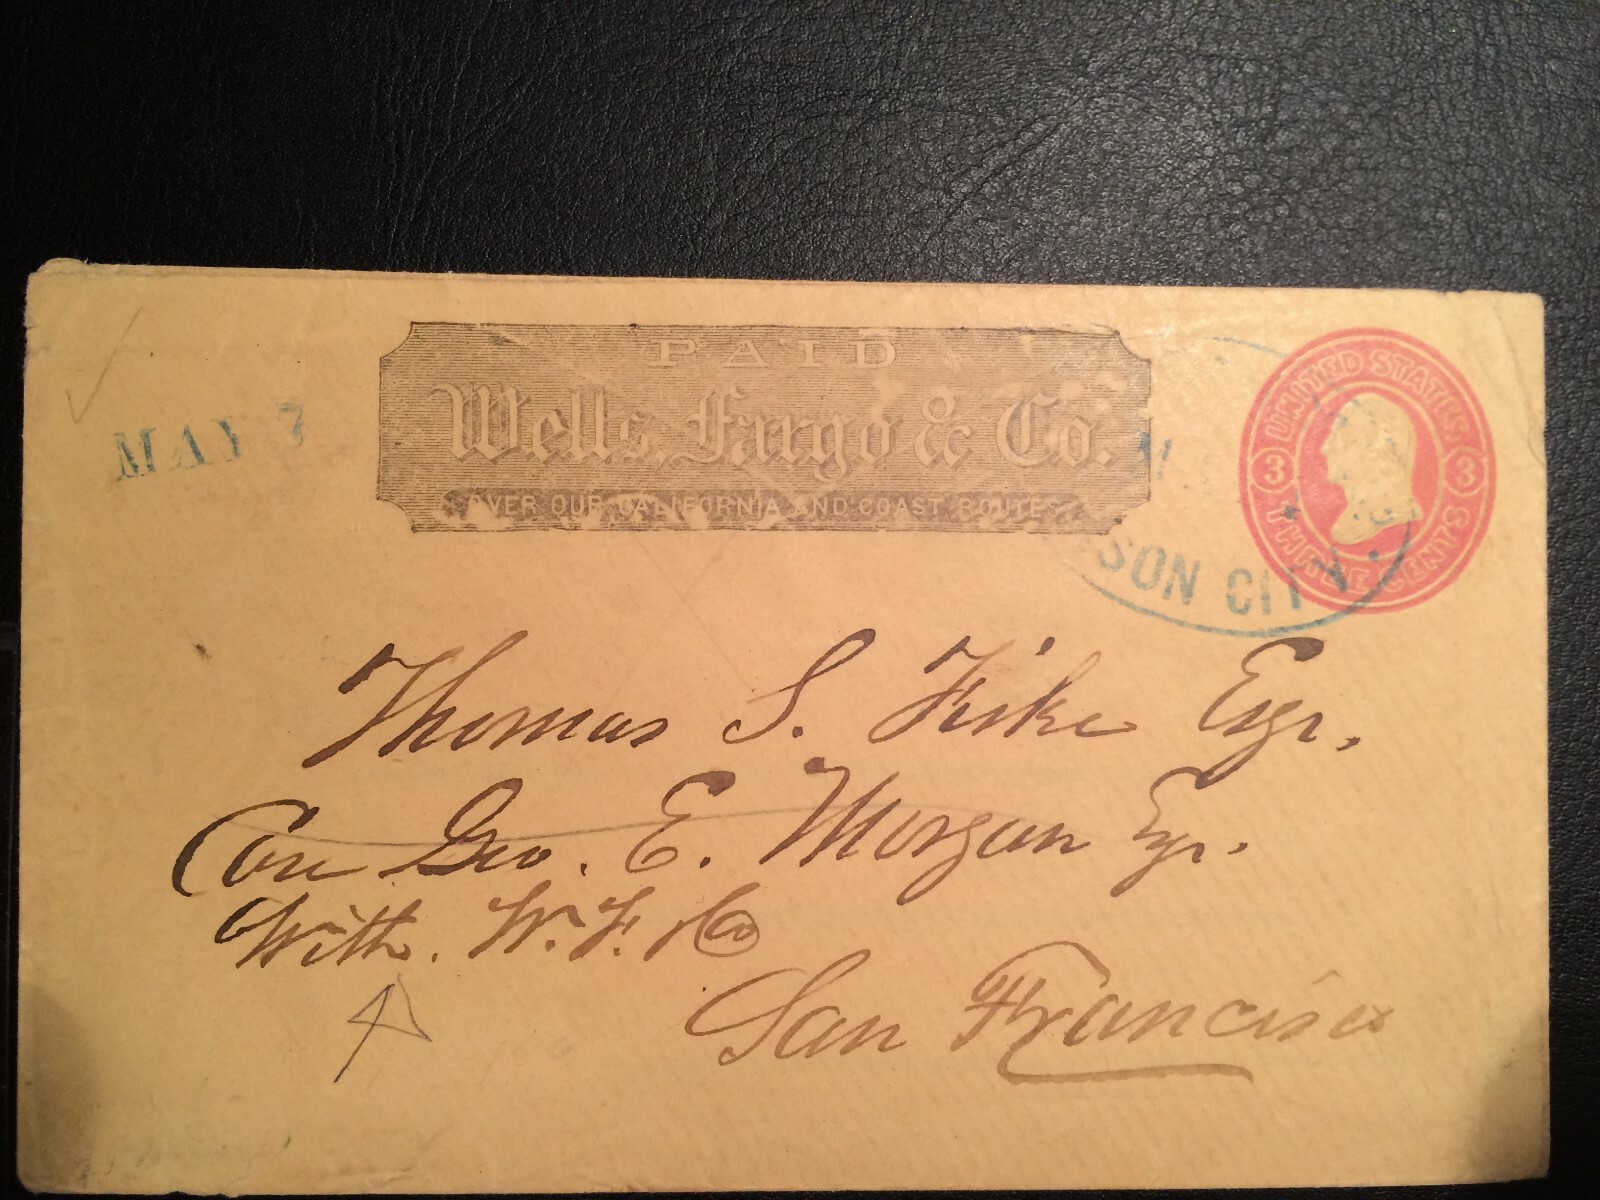 PAID
Wells, Fargo & Co.
OVER OUR CALIFORNIA AND COAST ROUTES
MAY 7
UNITED STATES
3 3
THREE CENTS
SON CITY.
Thomas S. Fiske Esqr,
Care Geo. E. Morgan Eqr.
With. W. F. & Co
San Francisco